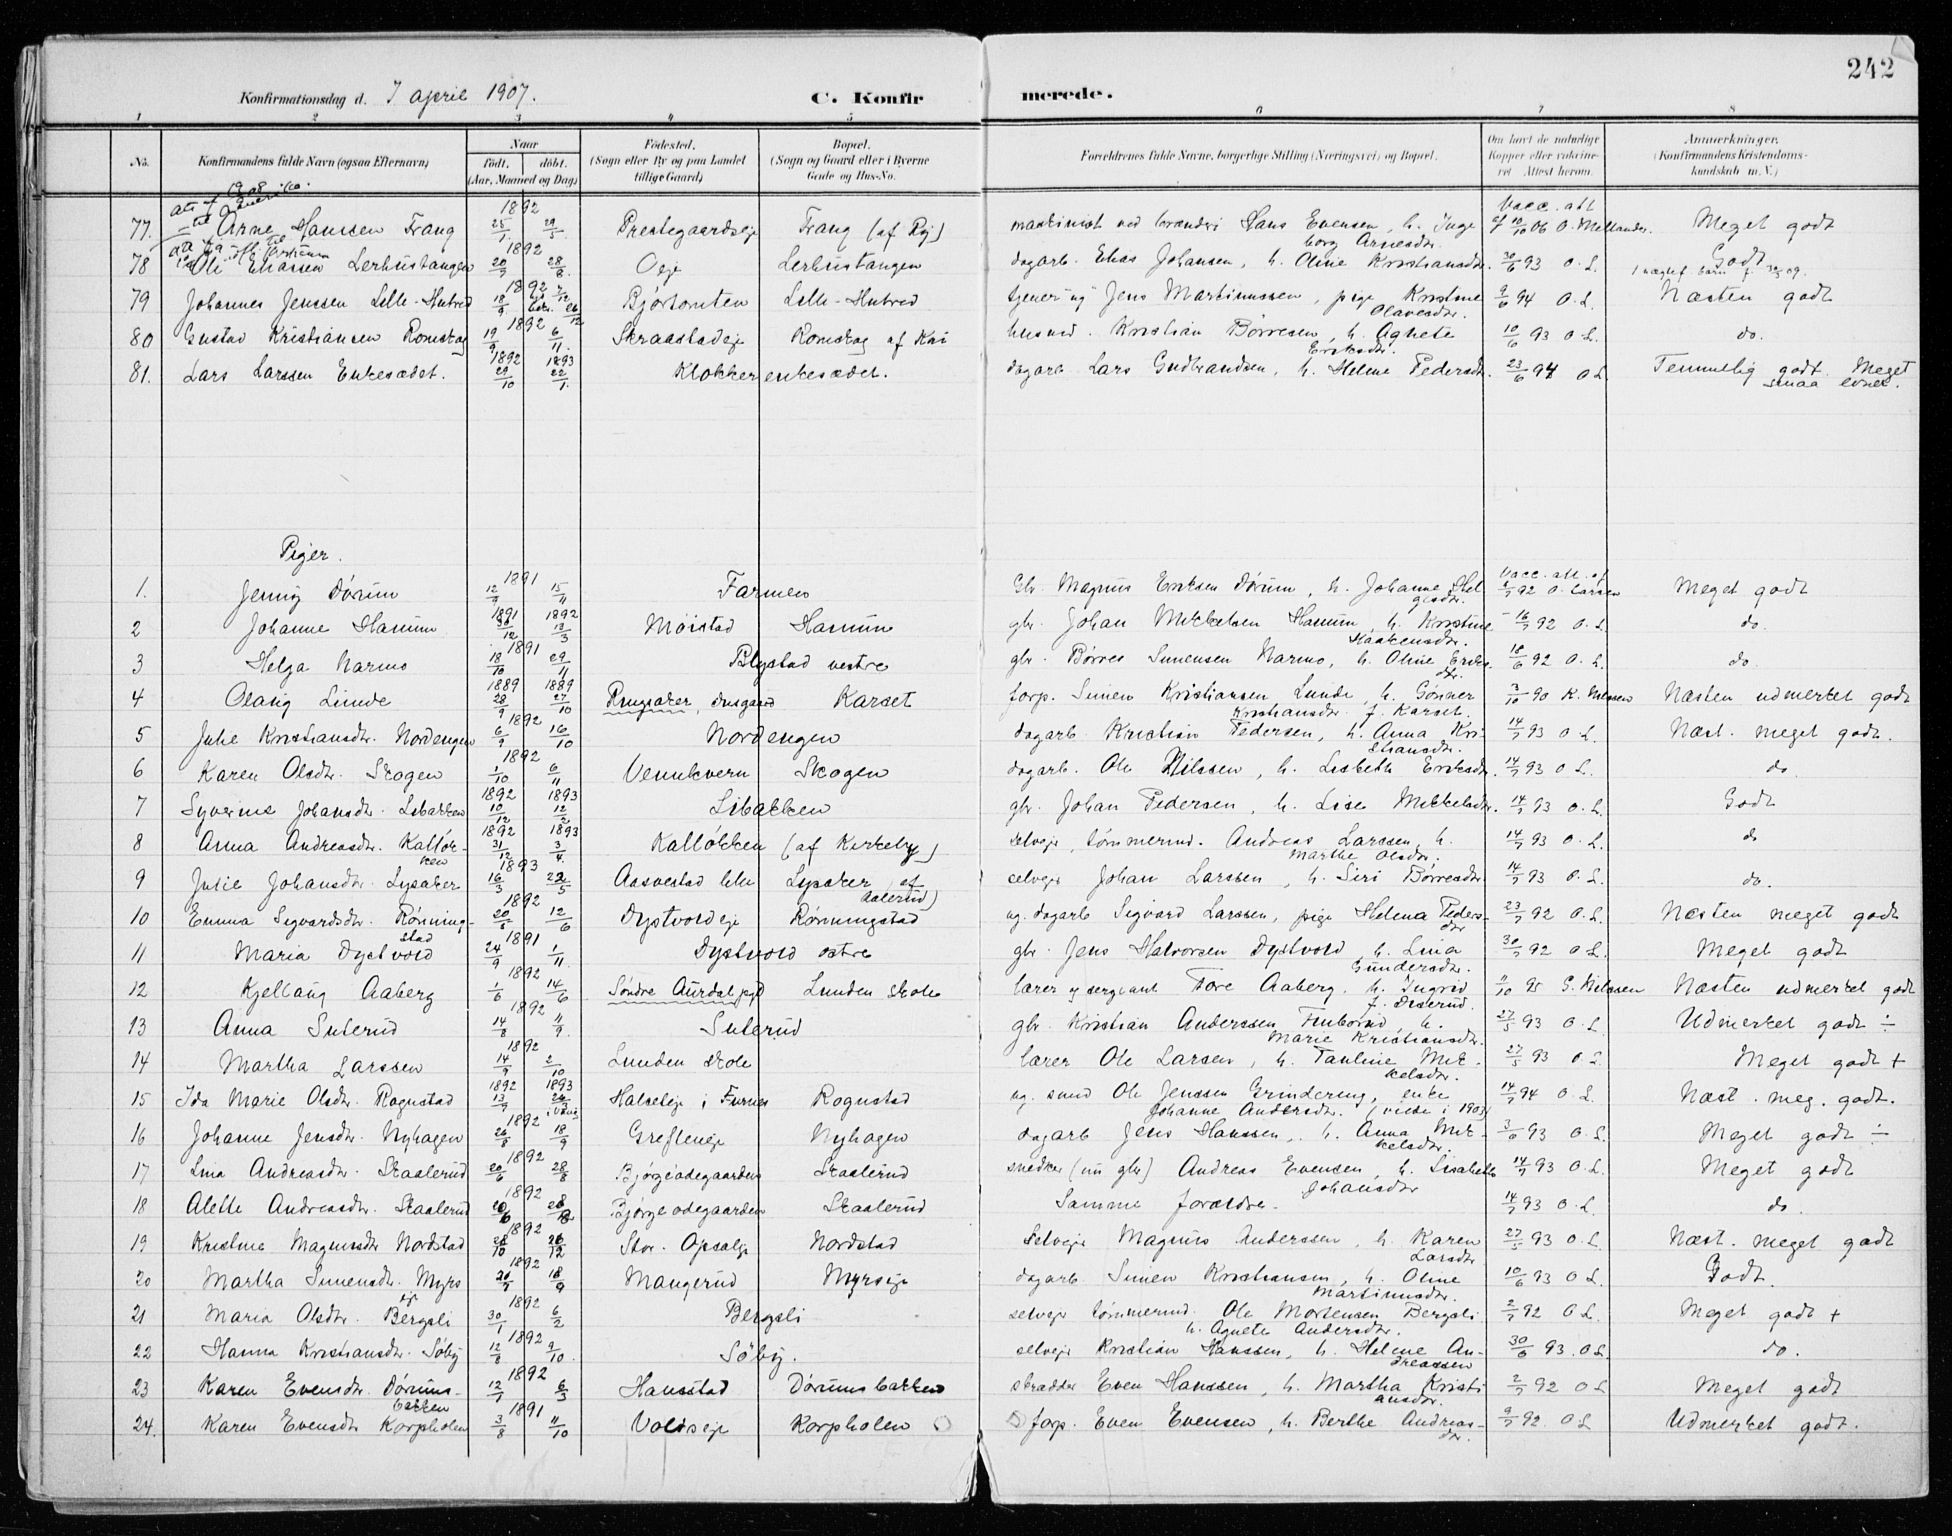 242
Konfirmationsdag d. 7 april 1907. C. Konfirmerede.
1 2 3 4 5 6 7 8
No. Konfirmandens fulde Navn (ogsaa Efternavn) Naar født, døbt. (Aar, Maaned og Dag) Fødested. (Sogn eller By og paa Landet tillige Gaard) Bopæl. (Sogn og Gaard eller i Byerne Gade og Hus-No. Forældrenes fulde Navne, borgerlige Stilling (Næringsvei) og Bopæl. Om havt de naturlige Kopper eller vaksineret. Attest herom. Anmærkninger. (Konfirmandens Kristendomskundskab m. V.)
77. Arne Hanssen Frang 1892 25/1 29/5 Prestegaardseje Frang (af Rej) maskinist ved brænderi Hans Evensen, h. Ingeborg Arnesdtr. Vacc. att. af 10/10 06 O. Mellander. Meget godt
78 Ole Eliassen Lerhustangen 1892 20/7 28/8 Oeje Lerhustangen dagarb. Elias Johansen, h. Oline Kristiansdtr. 30/6 93 O. L. Godt
79 Johannes Jenssen Lille-Hubred 1892 18/9 Bjørtomten Lille-Hubred tjener ug. Jens Martinussen, pige Kristine Olavesdtr. 9/6 94 O. L. Næsten godt
80 Gustav Kristiansen Romskog 1892 19/9 6/11. Skraastadeje Romskog af Kai husmd. Kristian Børresen, h. Agnete Eriksdtr. 10/6 93 O. L. do.
81. Lars Larssen Enkesædet. 1892 29/10 1893 22/1. Klokkerenkesædet. dagarb Lars Gudbrandsen, h. Helene Pedersdtr. 23/6 94 O L. Temmelig godt. Meget smaa evner.
Piger.
1. Jenny Dørum 1891 12/9 15/11 Farmen Gbr. Magnus Eriksen Dørum, h. Johanne Helgesdtr. Vacc. att. af 2/7 92 O. Larsen Meget godt
2 Johanne Hasum 1891 30/12 1892 13/3 Møistad Hasum gbr. Johan Mikkelsen Hasum, h. Kristine Haakensdtr. 16/7 92 O. L. do.
3 Helga Narmo 1891 18/10 29/11 Blystad vestre gbr. Børres Simensen Narmo, h. Oline Eriksdtr. 18/6 92 O. L. do
4 Olaug Linde 1889 28/9 1889 27/10 Ringsaker, Karset forp. Simen Kristiansen Lunde, h. Gønner Kristiansdtr. f. Karset. 3/10 90 K. Nilssen Næsten udmerket godt
5 Julie Kristiansdtr. Nordengen 1892 6/9 16/10 Nordengen dagarb. Kristian Pedersen, h. Anna Kristiansdtr. 14/7 93 O. L. Næst. meget godt.
6 Karen Olsdtr. Skogen 1892 1/10 6/11 Vennkvern Skogen dagarb. Ole Nilssen, h. Lisbeth Eriksdtr. 14/7 93 O L. do
7 Syverine Johansdtr. Libakken 1892 10/12 1893 12/2 Libakken gbr. Johan Pedersen, h. Lise Mikkelsdtr. 14/7 93 O. L. Godt
8 Anna Andreasdtr. Kalløkken 1892 31/12 1893 3/4. Kalløkken (af Kirkeby) selveje, tømmermd. Andreas Larssen, h. Marthe Olsdtr. 14/7 93 O. L. do
9 Julie Johansdtr. Lysaker 1893 16/3 22/5 Aasvestad lille Lysaker (af Aalerud) selvejer Johan Larssen, h. Siri Børresdtr. 14/7 93 O. L. do.
10 Emma Sigvardsdtr. Rønningstad 1892 20/5 12/6 Dystvoldeje Rønningstad ug. dagarb Sigvard Larssen, pige Helena Pedersdtr 23/7 92 O. L. Næsten meget godt
11 Maria Dystvold 1891 24/9 1/11. Dystvold østre gbr. Jens Halvorsen Dystvold, h. Lina Gundersdtr. 30/7 92 O L. Meget godt
12 Kjellaug Aaberg 1892 1/6 14/6 Søndre Aurdal pgd Lunden skole lærer og sergeant Tore Aaberg, h. Ingrid f. 11/10 95 G. Nilssen Næsten udmerket godt
13 Anna Suterud 1892 14/8 11/9. Suterud gbr. Kristian Anderssen, h. Marie Kristiansdtr. 27/5 93 O. L. Udmerket godt ÷
14 Martha Larssen 1892 14/9 2/10 Lunden skole lærer Ole Larsen, h. Pauline Mikkelsdtr. 27/5 93 O L. Meget godt +
15 Ida Marie Olsdtr. Rognstad 1892 13/9 1893 26/3 Halseteje i Furnes Rognstad ug. smed Ole Jenssen Grindering, enke Johanne Andersdtr. (viede i 1903) 14/7 94 O. L. Næst. meg. godt.
16 Johanne Jensdtr. Nyhagen 1892 26/8 18/9 Grefteneje Nyhagen dagarb Jens Hanssen, h. Anna Mikkelsdtr. 3/6 93 O. L. Meget godt ÷
17 Lina Andreasdtr. Skaalerud 1892 20/6 28/8 Bjørgeødegaarden Skaalerud snedker (nu gbr) Andreas Evensen, h. Lisabeth Johansdtr 14/7 93 O. L. Meget godt
18 Alette Andreasdtr. Skaalerud 1892 20/6 28/8 Bjørge ødegaarden Skaalerud Samme forældre. 14/7 93 O. L. do.
19 Kristine Magnusdtr Nordstad 1892 28/10 26/12 Stor. Opsalje Nordstad Selveje Magnus Anderssen, h. Karen Larsdtr 27/5 93 O. L. Næst. meget godt
20 Martha Simensdtr. Myrseje 1892 20/7 18/9 Mangerud Myrseje dagarb Simen Kristiansen, h. Oline Martinusdtr. 10/6 93 O L. Godt.
21 Maria Olsdtr. Bergsli 1892 30/1 6/2 Bergsli selveje tømmermd. Ole Mortensen Bergsli h. Agnete Andersdtr. 2/7 92 O L. Meget godt +
22 Hanna Kristiansdtr. Søby 1892 12/8 9/10. Søby. selveje Kristian Hanssen, h. Helene Andreassen 30/6 93. O L. do.
23 Karen Evensdtr. Dørumsbakken 1892 12/1 6/3 Hansstad Dørumsbakken skrædder Even Hanssen, h. Martha Kristiansdtr. 2/7 92 O L Meget godt
24. Karen Evensdtr Korpholen 1891 3/8 11/10 Voldseje Korpholen forp. Even Evensen, h. Berthe Andreasdtr. 9/7 92. O L Udmerket godt.